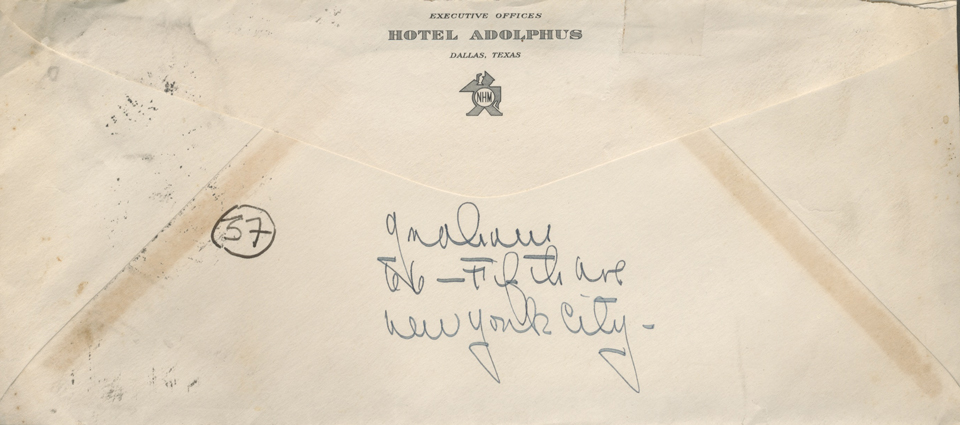 EXECUTIVE OFFICES
HOTEL ADOLPHUS
DALLAS, TEXAS
NHM
57
Graham
66 - Fifth Ave
New York City -